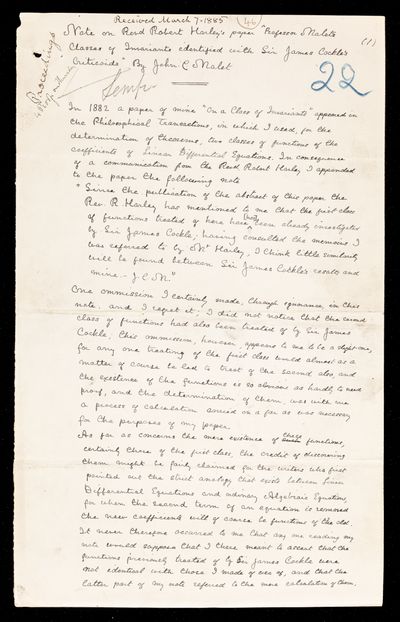 Received March 7. 1885
46
(1)
Note on Revd Robert Harley's paper "Professor Malet's
Classes of Invariants identified with Sir James Cockle's
Criticoids" By John C Malet
Proceedings
22
In 1882 a paper of mine "On a Class of Invariants" appeared in
the Philosophical Transactions, in which I used, for the
determination of theorems, two classes of functions of the
coefficients of Linear Differential Equations. In consequence
of a communication from the Revd Robert Harley, I appended
to the paper the following note
"Since the publication of the abstract of this paper the
Rev. R. Harley has mentioned to me that the first class
of functions treated of here have been already investigated
by Sir James Cockle; having consulted the memoirs I
was referred to by Mr Harley, I think little similarity
will be found between Sir James Cockle's results and
mine - J C M."
One ommission I certainly made, through ignorance, in this
note, and I regret it; I did not notice that the second
class of functions had also been treated of by Sir James
Cockle; this ommission, however, appears to me to be a slight one,
for any one treating of the first class would almost as a
matter of course be led to treat of the second also, and
the existence of the functions is so obvious as hardly to need
proof, and the determination of them, was with me
a process of calculation carried on as far as was necessary
for the purposes of my paper.
As far as concerns the mere existence of these functions,
certainly those of the first class, the credit of discovering
them might be fairly claimed for the writers who first
pointed out the strict analogy that exists between Linear
Differential Equations and ordinary Algebraic Equations,
for when the second term of an equation is removed
the new coefficients will of course be functions of the old.
It never therefore occurred to me that any one reading my
note would suppose that I there meant to assert that the
functions previously treated of by Sir James Cockle were
not identical with those I made use of, and that the
latter part of my note referred to the mere calculation of them.